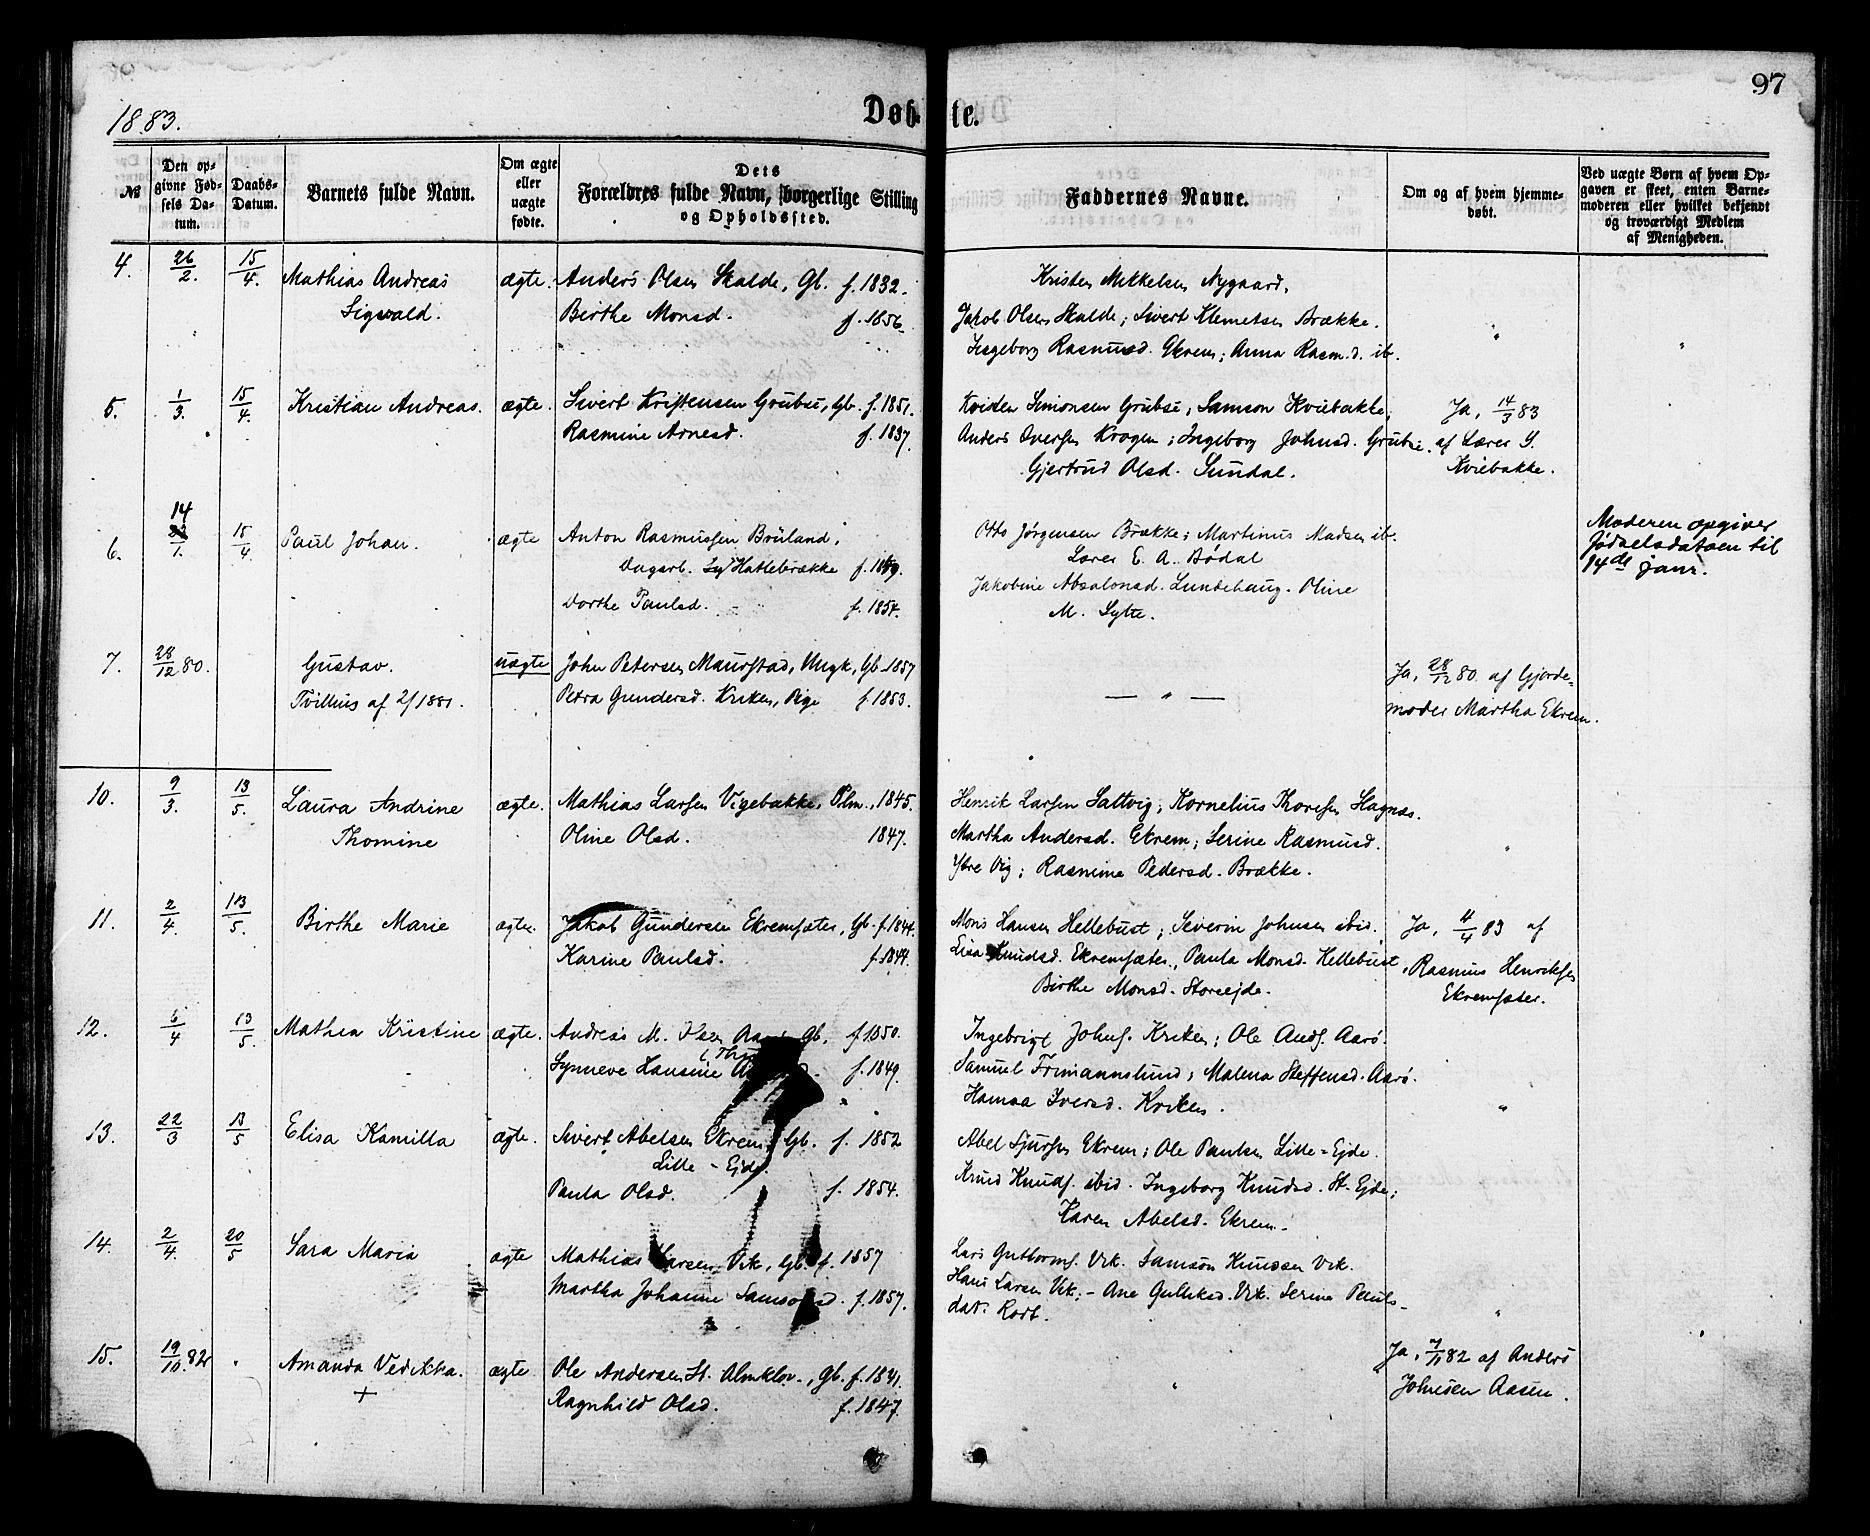 97
1883.
Døb- te.
№
Den op-
givne Fød-
sels Da-
tum.
Daabs-
Datum.
Barnets fulde Navn.
Om ægte
eller
uægte
fødte.
Dets
Forældres fulde Navn, borgerlige Stilling
og Opholdssted.
Faddernes Navne.
Om og af hvem hjemme-
døbt.
Ved uægte Børn af hvem Op-
gaven er skeet, enten Barne-
moderen eller hvilket bekjendt
og troværdigt Medlem
af Menigheden.
4. 26/2. 15/4. Mathias Andreas ægte. Anders Olsen Skalde, Gb. f. 1832. Kristen Mikkelsen Nygaard,
Sigvald. Birthe Monsd. f. 1856. Jakob Olsen Skalde; Sivert Klemetsen Brække.
Ingeborg Rasmusd. Ekrem; Anna Rasm.d. ib. " "
5. 1/3. 15/4. Kristian Andreas. ægte. Sivert Kristensen Grubse, Gb. f. 1851. Kristen Simonsen Grubse; Samson Kviebakke, Ja, 14/3 83
Rasmine Arnesd. f. 1837. Anders Iversen Krogen; Ingeborg Johnsd. Grubse. af Lærer S.
Gjertrud Olsd. Sundal. Kviebakke.
14
6. 1. 15/4. Paul Johan. ægte Anton Rasmussen Bruland, Otto Jørgensen Brække; Martinus Madsen ib. Moderen opgiver
Dagarb. Hatlebrække f. 1849. Lærer E. A. Bødal fødselsdatoen til
Dorthe Paulsd. f. 1854. Jakobine Absalonsd. Lundehaug. Oline 14de janr.
M. Sytte.
7. 28/12 80. Gustav. uægte John Petersen Maurstad, Ungk, Gb. 1857 Ja, 28/12 80. af Gjorde-
Tvilling af 2/1881. Petra Gundersd. Kriken, Pige f. 1853. — " — moder Martha Ekrem.
10. 9/3. 13/5. Laura Andrine ægte. Mathias Larsen Vigebakke, Plm., 1845. Henrik Larsen Sattvig; Kornelius Thoresen Hagnæs.
Thomine Oline Olsd. 1847. Martha Andersd. Ekrem; Serine Rasmusd.
Ytre Vig; Rasmine Pedersd. Brække. "
11. 2/4. 13/5. Birthe Marie ægte. Jakob Gundersen Ekremsæter, Gb. f. 1844. Mons Hansen Hellebust; Severin Johnsen ibid. Ja, 4/4 83 af
Karine Paulsd. f. 1844. Lisa Knudsd. Ekremsæter, Paula Monsd. Hellebust, Rasmus Henriksen
Birthe Monsd. Storeejde. Ekremsæter.
12. 6/4 13/5. Mathea Kristine ægte. Andreas M. Gb. f. 1850. Ingebrigt Johns. Kriken; Ole Ands. Aarø.
Synneve Hansine f. 1849. Samuel Frimannslund; Malena Steffensd. Aarø.
Hanna Iversd. Kriken. "
13. 22/3 13/5 Elisa Kamilla ægte. Sivert Abelsen Ekrem, Gb. f. 1852 Abel Sjursen Ekrem; Ole Paulsen Lille-Ejde.
Lille-Ejde. Knud Knuds. ibid. Ingeborg Knudsd. St. Ejde;
Paula Olsd. f. 1854. Karen Abelsd. Ekrem.
14. 2/4. 20/5 Sara Maria ægte Mathias Larsen Vik, Gb. f. 1857 Lars Guttorms. Vik. Samson Knudsen Vik.
Martha Johanne Samsonsd. f. 1857. Hans Larsen Vik; - Ane Gulliksd. Vik. Serine Pauls-
dat. Rørt. "
15. 19/10. 82 " Amanda Vedikka. ægte Ole Andersen St. Almklov., Gb. f. 1841. Ja, 7/11 82 af Anders
+ Ragnhild Olsd. f. 1847. " Johnsen Aasen.